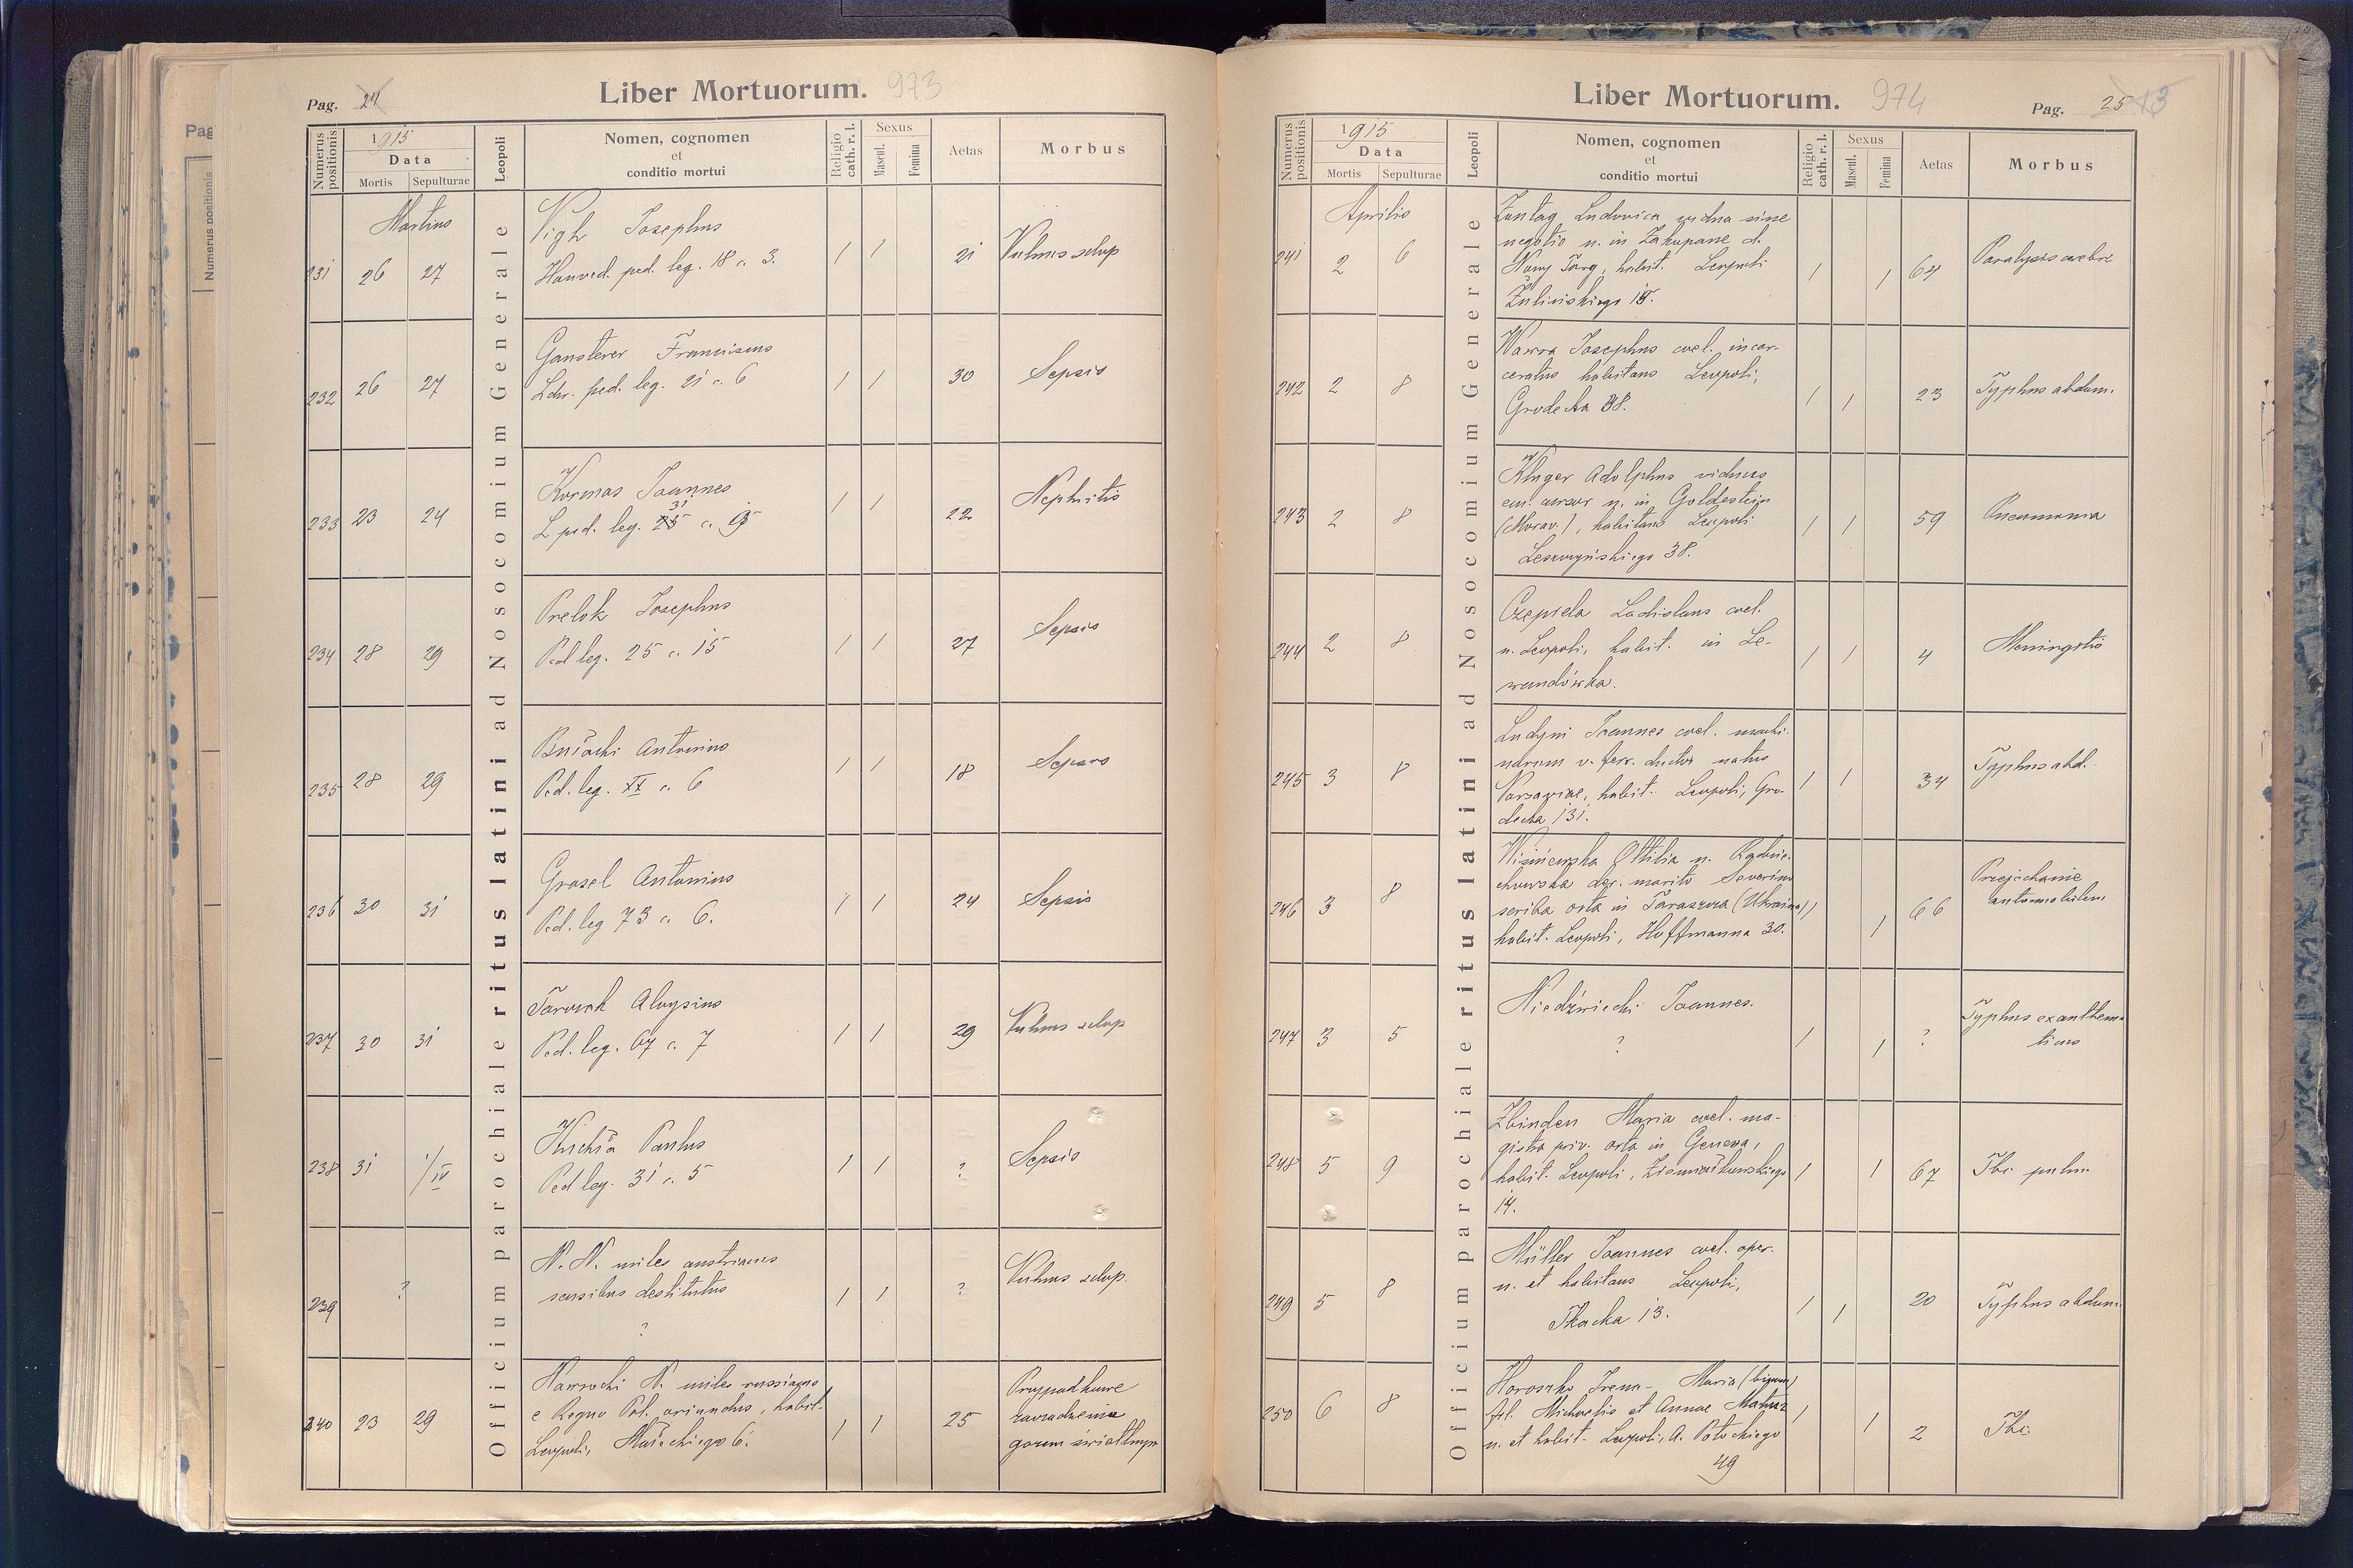 Liber Mortuorum. 973
Pag. 24
Numerus positionis
1915
Data
Mortis
Sepulturae
Leopoli
Nomen, cognomen
et
conditio mortui
Religio
cath. r. l.
Sexus
Mascul.
Femina
Aetas
Morbus
Officium parochiale ritus latini ad Nosocomium Generale
Martius
231 26 27
Vigh Josephus
Honved. ped. leg. 18 c. 3.
1 1 21 Vulnus sclop
232 26 27
Gansterer Franciscus
Ldw. ped. leg. 21 c. 6
1 1 30 Sepsis
233 23 24
Kormas Joannes
31
L ped. leg. 25 c.
1 1 22 Nephritis
234 28 29
Prelok Josephus
Ped leg. 25 c. 15
1 1 27 Sepsis
235 28 29
Antonius
Ped. leg. XX c. 6
1 1 18 Sepsis
236 30 31
Grasel Antonius
Ped. leg 73 c. 6.
1 1 24 Sepsis
237 30 31
Aloysius
Ped. leg. 67 c. 7
1 1 29 Vulnus sclop
238 31 1/IV
Paulus
Ped leg. 31 c. 5
1 1 ? Sepsis
239 ?
N. N. miles austriacus
sensibus destitutus
?
1 1 ? Vulnus sclop.
240 23 29
Nawrocki N. miles russiacus
e Regno Pol. oriundus, habit.
Leopoli, 6.
1 1 25
Przypadkowe
zaczadzenie
gazem świetlnym
Liber Mortuorum. 974
Pag. 25
Numerus positionis
1915
Data
Mortis
Sepulturae
Leopoli
Nomen, cognomen
et
conditio mortui
Religio
cath. r. l.
Sexus
Mascul.
Femina
Aetas
Morbus
Officium parochiale ritus latini ad Nosocomium Generale
Aprilis
241 2 6
Zontag Ludovica vidua sine
negotio n. in Zakopane d.
Nowy Targ, habit. Leopoli
Żulińskiego 15.
1 1 64 Paralysis cerebri
242 2 8
Wawra Josephus coel. incar-
ceratus habitans Leopoli,
Grodecka 38.
1 1 23 Typhus abdom.
243 2 8
Kluger Adolphus viduus
em. cursor n. in Goldestein
(Morav.), habitans Leopoli
Leszczyńskiego 38.
1 1 59 Pneumonia
244 2 8
Czepiela Ladislaus coel.
n. Leopoli, habit. in Le-
wandówka.
1 1 4 Meningitis
245 3 8
Ludyni Joannes coel. machi-
narum v. ferr. ductor natus
Varsaviae, habit. Leopoli, Gro-
decka 131.
1 1 34 Typhus abd.
246 3 8
Wiśniewska Ottilia n.
marito Severino
scriba orta in Taraszcza (Ukraina)
habit. Leopoli, Hoffmanna 30.
1 1 66
Przejechanie
automobilem
247 3 5
Niedźwiecki Joannes.
?
1 1 ?
Typhus exanthema-
ticus
248 5 9
Zbinden Maria coel. ma-
gistra priv. orta in Geneva,
habit. Leopoli, Ziemiałkowskiego
14.
1 1 67 Tbc. pulm.
249 5 8
Müller Joannes coel. oper.
n. et habitans Leopoli,
Tkacka 13.
1 1 20 Typhus abdom.
250 6 8
Horoszko Irena-Maria
fil. Michaelis et Annae
n. et habit. Leopoli, A. Potockiego
49
1 1 2 Tbc.
Pag
Numerus positionis